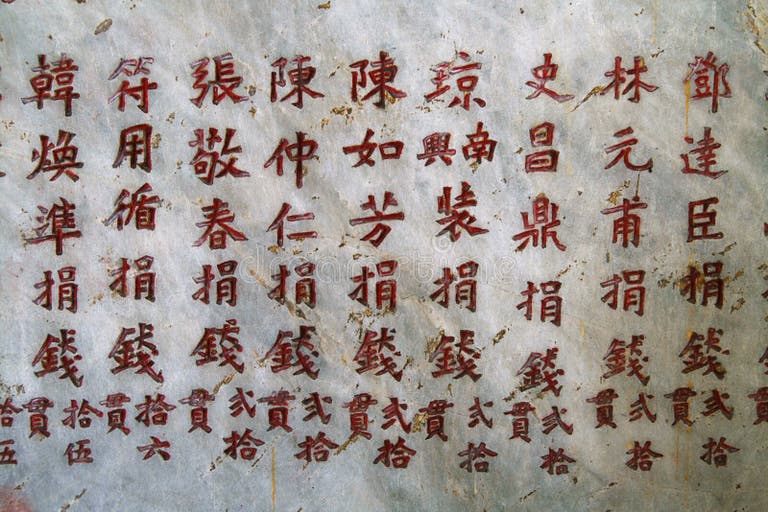 鄧達臣捐錢弍拾貫
林元甫捐錢弍拾貫
史昌鼎捐錢弍拾貫
瓊南興裝捐錢弍拾貫
陳如芳捐錢弍拾貫
陳仲仁捐錢弍拾貫
張敬春捐錢弍拾貫
符用循捐錢拾六貫
韓煥準捐錢拾伍貫